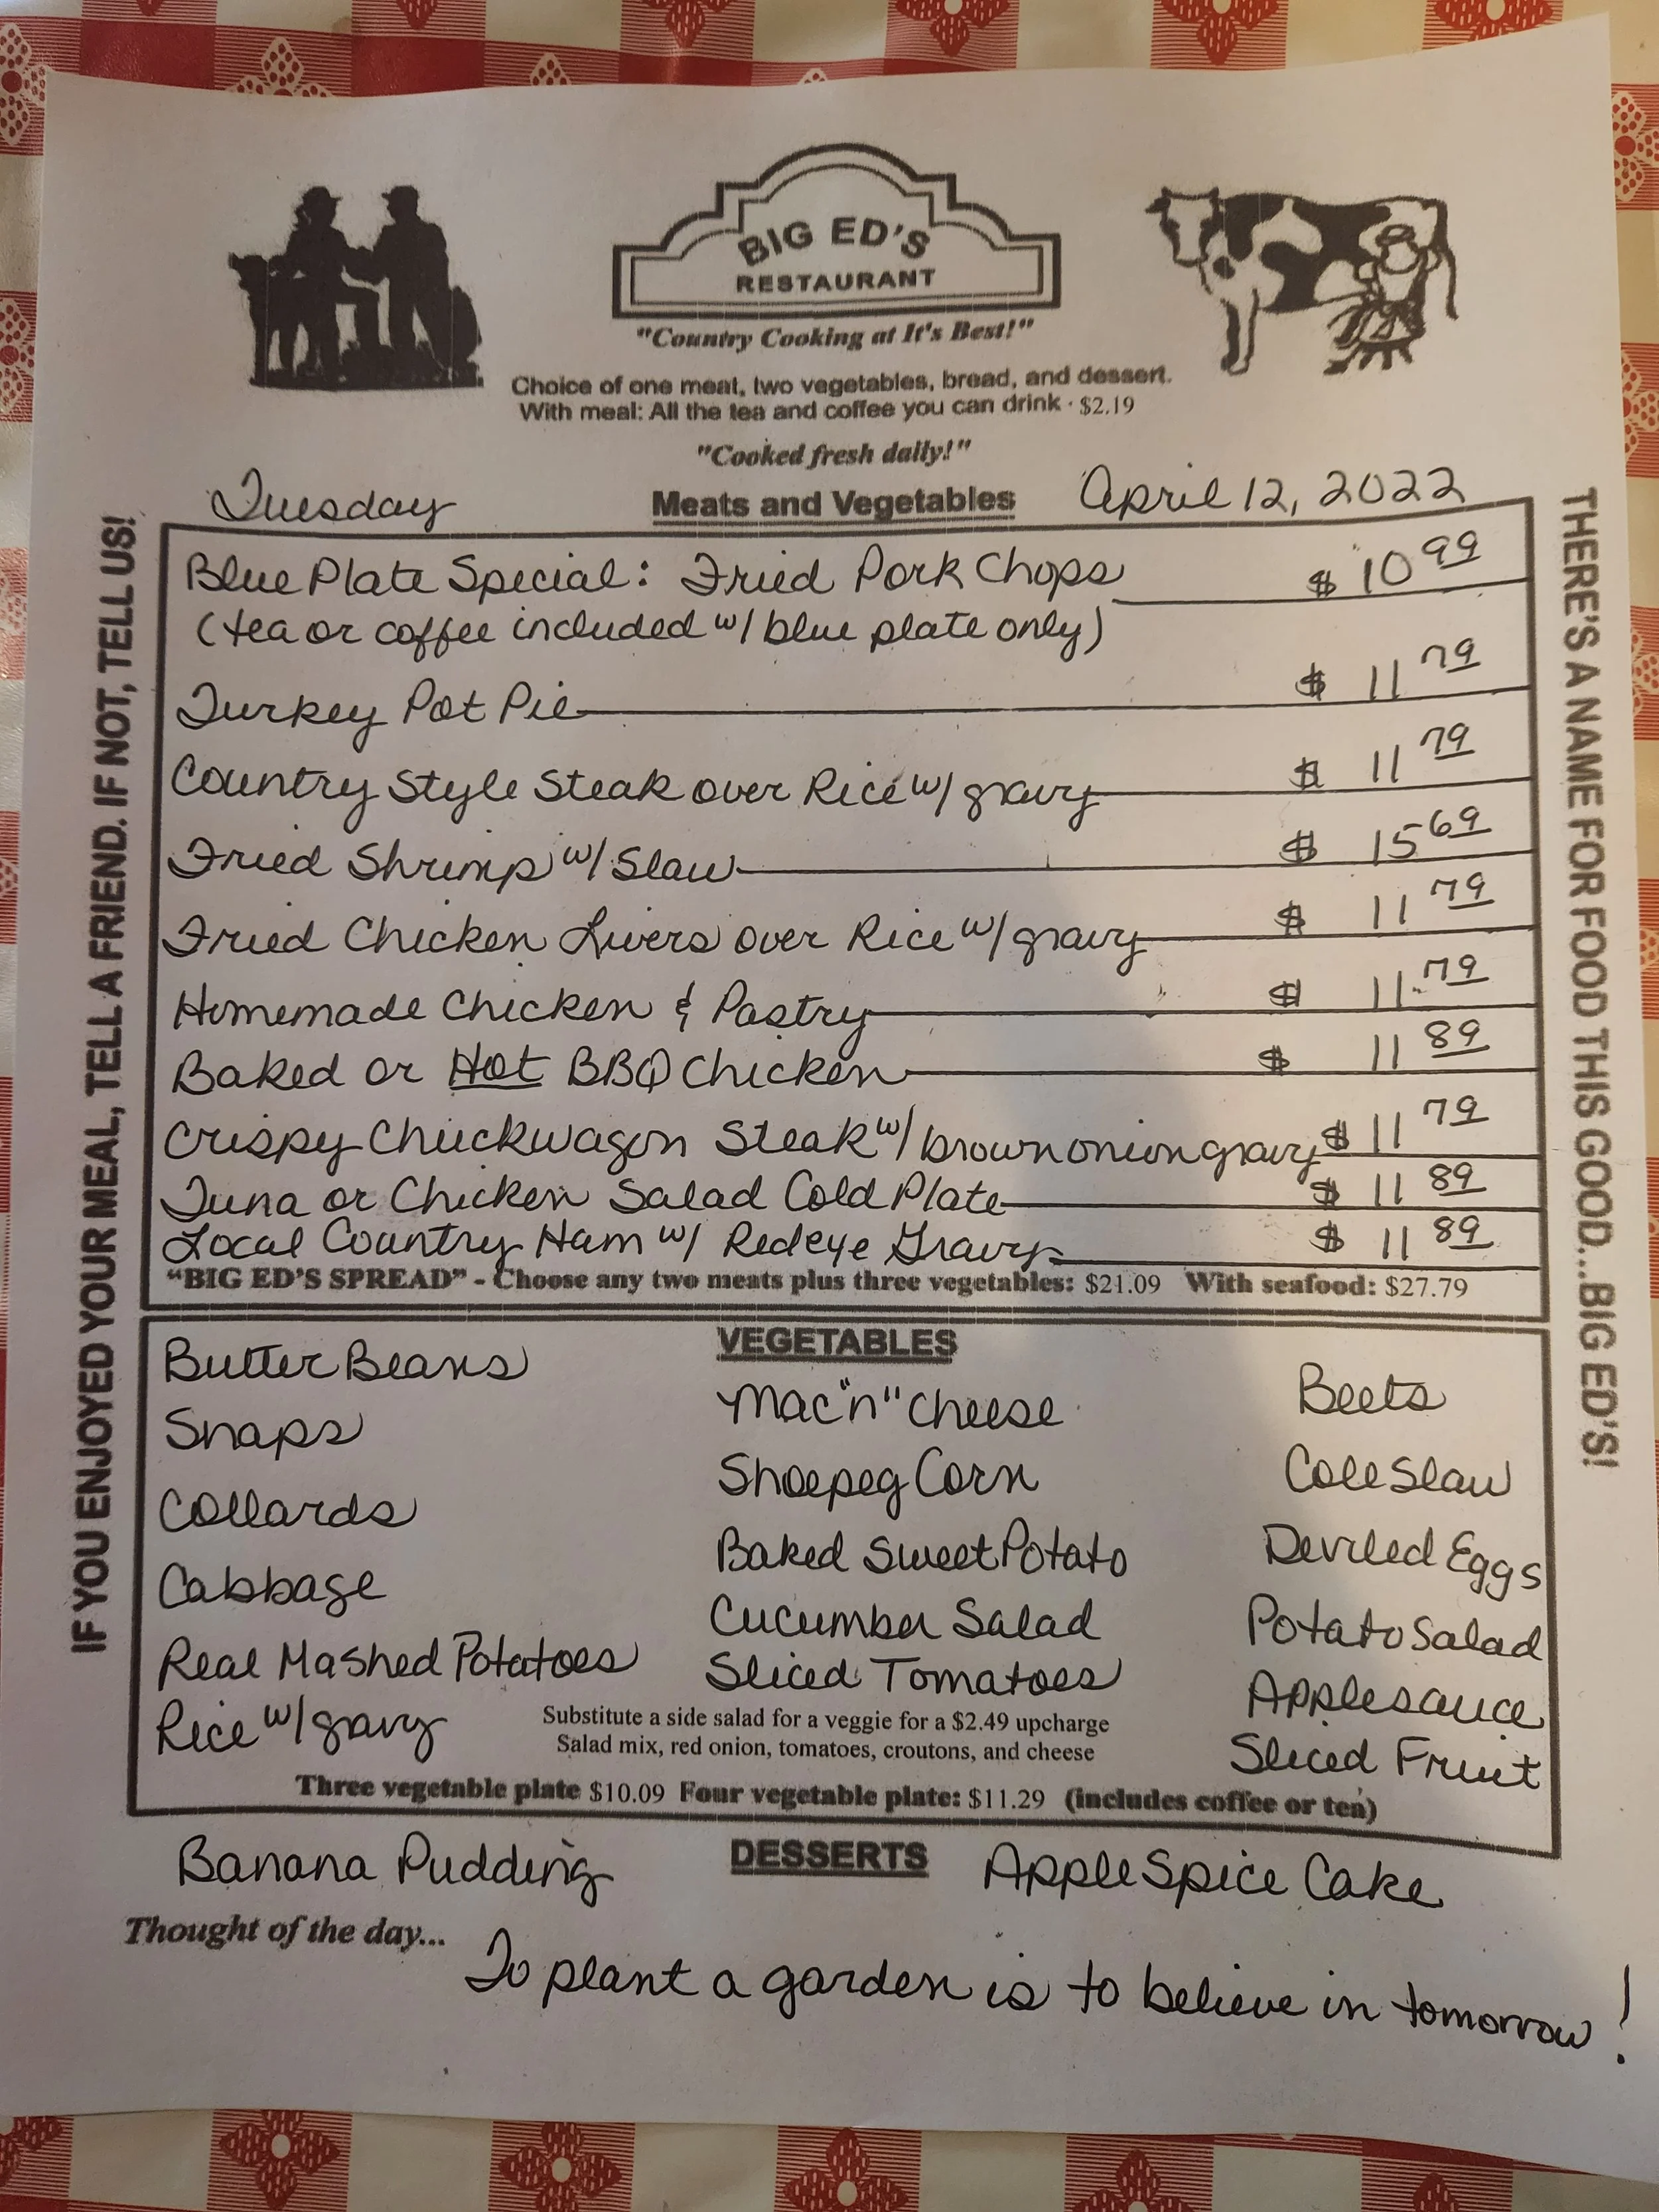 BIG ED'S
RESTAURANT
"Country Cooking at It's Best!"
Choice of one meat, two vegetables, bread, and dessert.
With meal: All the tea and coffee you can drink · $2.19
"Cooked fresh daily!"
Tuesday Meats and Vegetables April 12, 2022
IF YOU ENJOYED YOUR MEAL, TELL A FRIEND. IF NOT, TELL US!
Blue Plate Special: Fried Pork Chops $ 10 99
(tea or coffee included w/ blue plate only)
Turkey Pot Pie $ 11 79
Country Style Steak over Rice w/ gravy $ 11 79
Fried Shrimp w/ Slaw $ 15 69
Fried Chicken Livers over Rice w/ gravy $ 11 79
Homemade Chicken & Pastry $ 11 79
Baked or Hot BBQ Chicken $ 11 89
Crispy Chuckwagon Steak w/ brown onion gravy $ 11 79
Tuna or Chicken Salad Cold Plate $ 11 89
Local Country Ham w/ Redeye Gravy $ 11 89
"BIG ED'S SPREAD" - Choose any two meats plus three vegetables: $21.09 With seafood: $27.79
THERE'S A NAME FOR FOOD THIS GOOD...BIG ED'S!
VEGETABLES
Butter Beans
Snaps
Collards
Cabbage
Real Mashed Potatoes
Rice w/ gravy
Mac "n" Cheese
Shoepeg Corn
Baked Sweet Potato
Cucumber Salad
Sliced Tomatoes
Beets
Cole Slaw
Deviled Eggs
Potato Salad
Applesauce
Sliced Fruit
Substitute a side salad for a veggie for a $2.49 upcharge
Salad mix, red onion, tomatoes, croutons, and cheese
Three vegetable plate $10.09 Four vegetable plate: $11.29 (includes coffee or tea)
Banana Pudding DESSERTS Apple Spice Cake
Thought of the day...
To plant a garden is to believe in tomorrow!